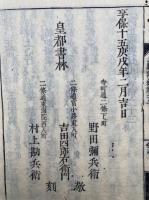 享保十五庚戌年二月吉日
寺町通二條下町
野田彌兵衛
皇都書林
二條通富小路東入町
吉田四郎右衛門
二條通東洞院西入町
村上勘兵衛
刻